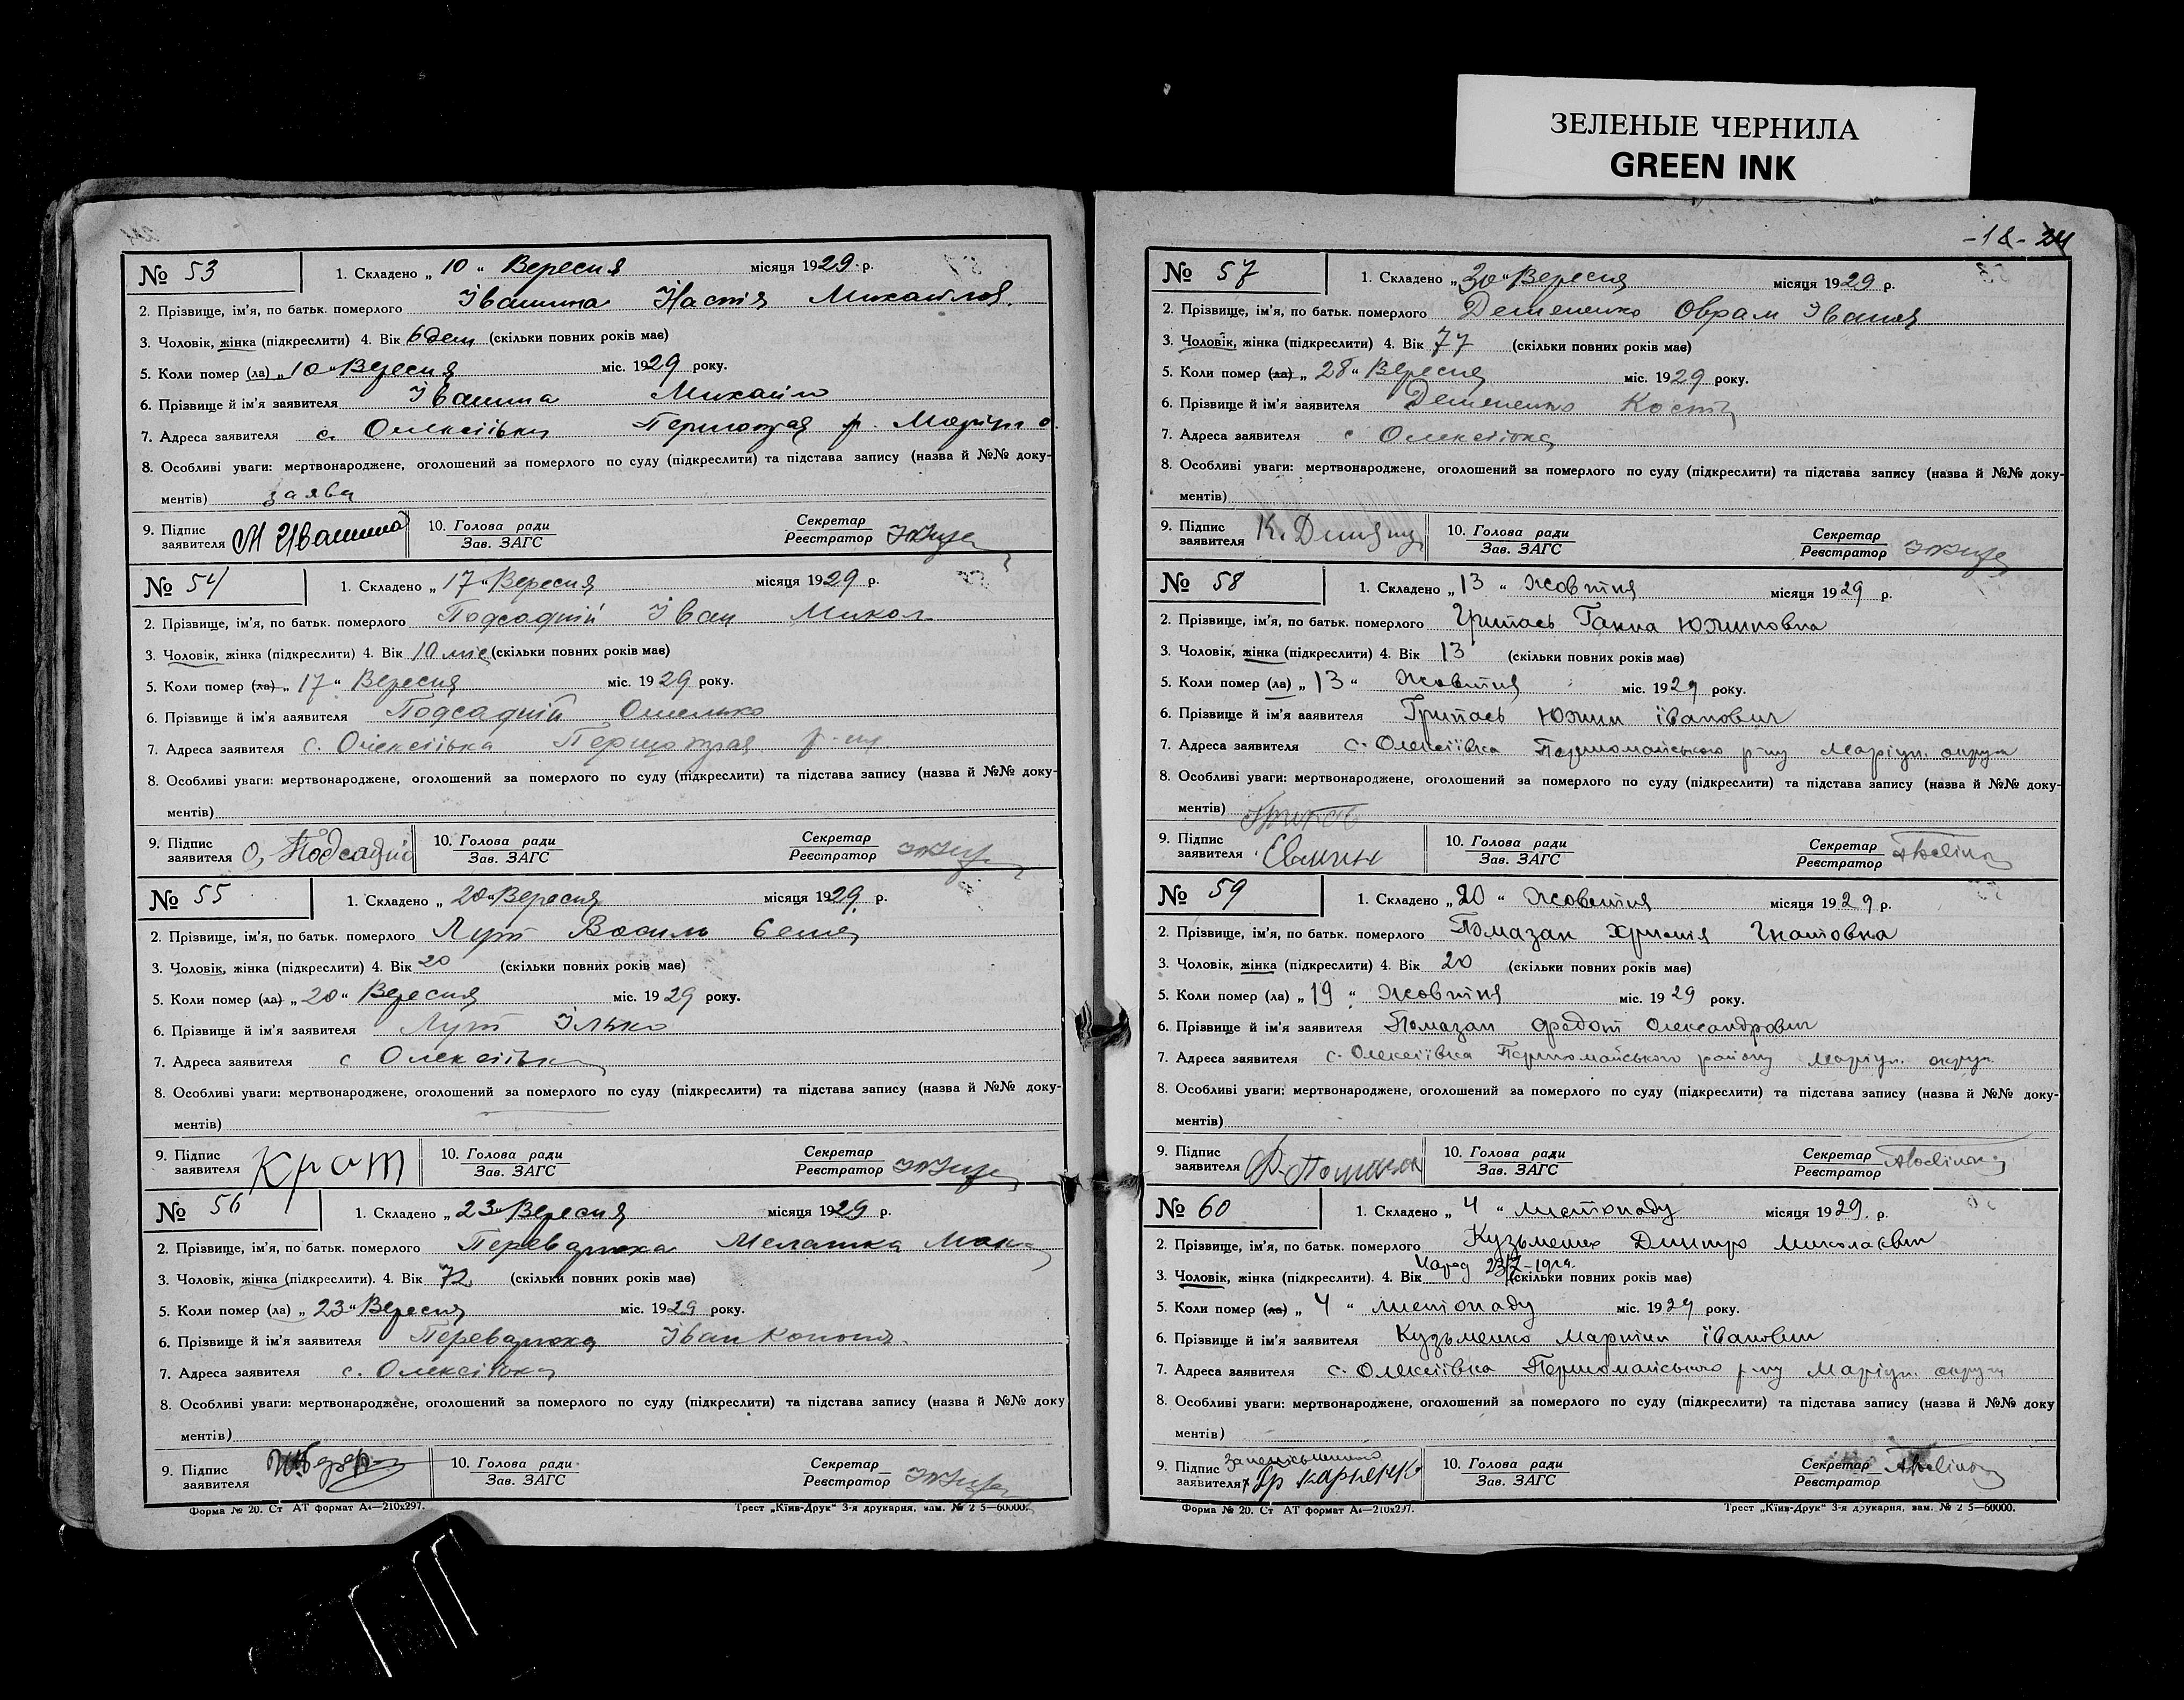 ЗЕЛЕНЫЕ ЧЕРНИЛА
GREEN INK
№ 53
1. Складено „ 10 “ Вересня місяця 1929 р.
2. Прізвище, ім'я, по батьк. померлого Івашина Настя Михайлов.
3. Чоловік, жінка (підкреслити) 4. Вік (скільки повних років має)
5. Коли помер (ла) „ 10 “ Вересня міс. 1929 року.
6. Прізвище й ім'я заявителя Івашина Михайло
7. Адреса заявителя с. Олексіївка р.
8. Особливі уваги: мертвонароджене, оголошений за померлого по суду (підкреслити) та підстава запису (назва й №№ доку-
ментів) заява
9. Підпис заявителя М Ивашина
10. Голова ради
Зав. ЗАГС
Секретар
Реєстратор
№ 54
1. Складено „ 17 “ Вересня місяця 1929 р.
2. Прізвище, ім'я, по батьк. померлого Подсадній Іван Микол
3. Чоловік, жінка (підкреслити) 4. Вік 10 міс (скільки повних років має)
5. Коли помер (ла) „ 17 “ Вересня міс. 1929 року.
6. Прізвище й ім'я заявителя Подсадній Омелько
7. Адреса заявителя с. Олексіївка
8. Особливі уваги: мертвонароджене, оголошений за померлого по суду (підкреслити) та підстава запису (назва й №№ доку-
ментів)
9. Підпис заявителя О. Подсадній
10. Голова ради
Зав. ЗАГС
Секретар
Реєстратор
№ 55
1. Складено „ 20 “ Вересня місяця 1929 р.
2. Прізвище, ім'я, по батьк. померлого Лут Василь
3. Чоловік, жінка (підкреслити) 4. Вік 20 (скільки повних років має)
5. Коли помер (ла) „ 20 “ Вересня міс. 1929 року.
6. Прізвище й ім'я заявителя Лут Ілько
7. Адреса заявителя с Олексіївка
8. Особливі уваги: мертвонароджене, оголошений за померлого по суду (підкреслити) та підстава запису (назва й №№ доку-
ментів)
9. Підпис заявителя
10. Голова ради
Зав. ЗАГС
Секретар
Реєстратор
№ 56
1. Складено „ 23 “ Вересня місяця 1929 р.
2. Прізвище, ім'я, по батьк. померлого Перевазнюха Мелашка
3. Чоловік, жінка (підкреслити). 4. Вік 72 (скільки повних років має)
5. Коли помер (ла) „ 23 “ Вересня міс. 1929 року.
6. Прізвище й ім'я заявителя Іван
7. Адреса заявителя с. Олексіївка
8. Особливі уваги: мертвонароджене, оголошений за померлого по суду (підкреслити) та підстава запису (назва й №№ доку
ментів)
9. Підпис заявителя
10. Голова ради
Зав. ЗАГС
Секретар
Реєстратор
Форма № 20. Ст АТ формат А4—210х297.
Трест „Київ-Друк“ 3-я друкарня, зам. № 2 5—60000.
-18- 24
№ 57
1. Складено „ 30 “ Вересня місяця 1929 р.
2. Прізвище, ім'я, по батьк. померлого Оврам Іванов
3. Чоловік, жінка (підкреслити) 4. Вік 77 (скільки повних років має)
5. Коли помер (ла) „ 28 “ Вересня міс. 1929 року.
6. Прізвище й ім'я заявителя
7. Адреса заявителя с Олексіївка
8. Особливі уваги: мертвонароджене, оголошений за померлого по суду (підкреслити) та підстава запису (назва й №№ доку-
ментів)
9. Підпис заявителя
10. Голова ради
Зав. ЗАГС
Секретар
Реєстратор
№ 58
1. Складено „ 13 “ Жовтня місяця 1929 р.
2. Прізвище, ім'я, по батьк. померлого Грипась Ганна Юхимовна
3. Чоловік, жінка (підкреслити) 4. Вік 13 (скільки повних років має)
5. Коли помер (ла) „ 13 “ Жовтня міс. 1929 року.
6. Прізвище й ім'я заявителя Грипась Юхим Іванович
7. Адреса заявителя с. Олексіївка Першомайського р-ну Маріуп. округи
8. Особливі уваги: мертвонароджене, оголошений за померлого по суду (підкреслити) та підстава запису (назва й №№ доку-
ментів)
9. Підпис заявителя
10. Голова ради
Зав. ЗАГС
Секретар
Реєстратор
№ 59
1. Складено „ 20 “ Жовтня місяця 1929 р.
2. Прізвище, ім'я, по батьк. померлого Помазан Христя Гнатовна
3. Чоловік, жінка (підкреслити) 4. Вік 20 (скільки повних років має)
5. Коли помер (ла) „ 19 “ Жовтня міс. 1929 року.
6. Прізвище й ім'я заявителя Помазан Федот Олександрович
7. Адреса заявителя с. Олексіївка Першомайського району Маріуп. округи
8. Особливі уваги: мертвонароджене, оголошений за померлого по суду (підкреслити) та підстава запису (назва й №№ доку-
ментів)
9. Підпис заявителя Ф. Помазан
10. Голова ради
Зав. ЗАГС
Секретар
Реєстратор
№ 60
1. Складено „ 4 “ листопаду місяця 1929. р.
2. Прізвище, ім'я, по батьк. померлого Кузьменко Дмитро Миколаєвич
3. Чоловік, жінка (підкреслити). 4. Вік Народ (скільки повних років має)
5. Коли помер (ла) „ 4 “ листопаду міс. 1929 року.
6. Прізвище й ім'я заявителя Кузьменко Мартин Іванович
7. Адреса заявителя с. Олексіївка Першомайського р-ну Маріуп. округи
8. Особливі уваги: мертвонароджене, оголошений за померлого по суду (підкреслити) та підстава запису (назва й №№ доку
ментів)
9. Підпис заявителя
10. Голова ради
Зав. ЗАГС
Секретар
Реєстратор
Форма № 20. Ст АТ формат А4—210х297.
Трест „Київ-Друк“ 3-я друкарня, зам. № 2 5—60000.